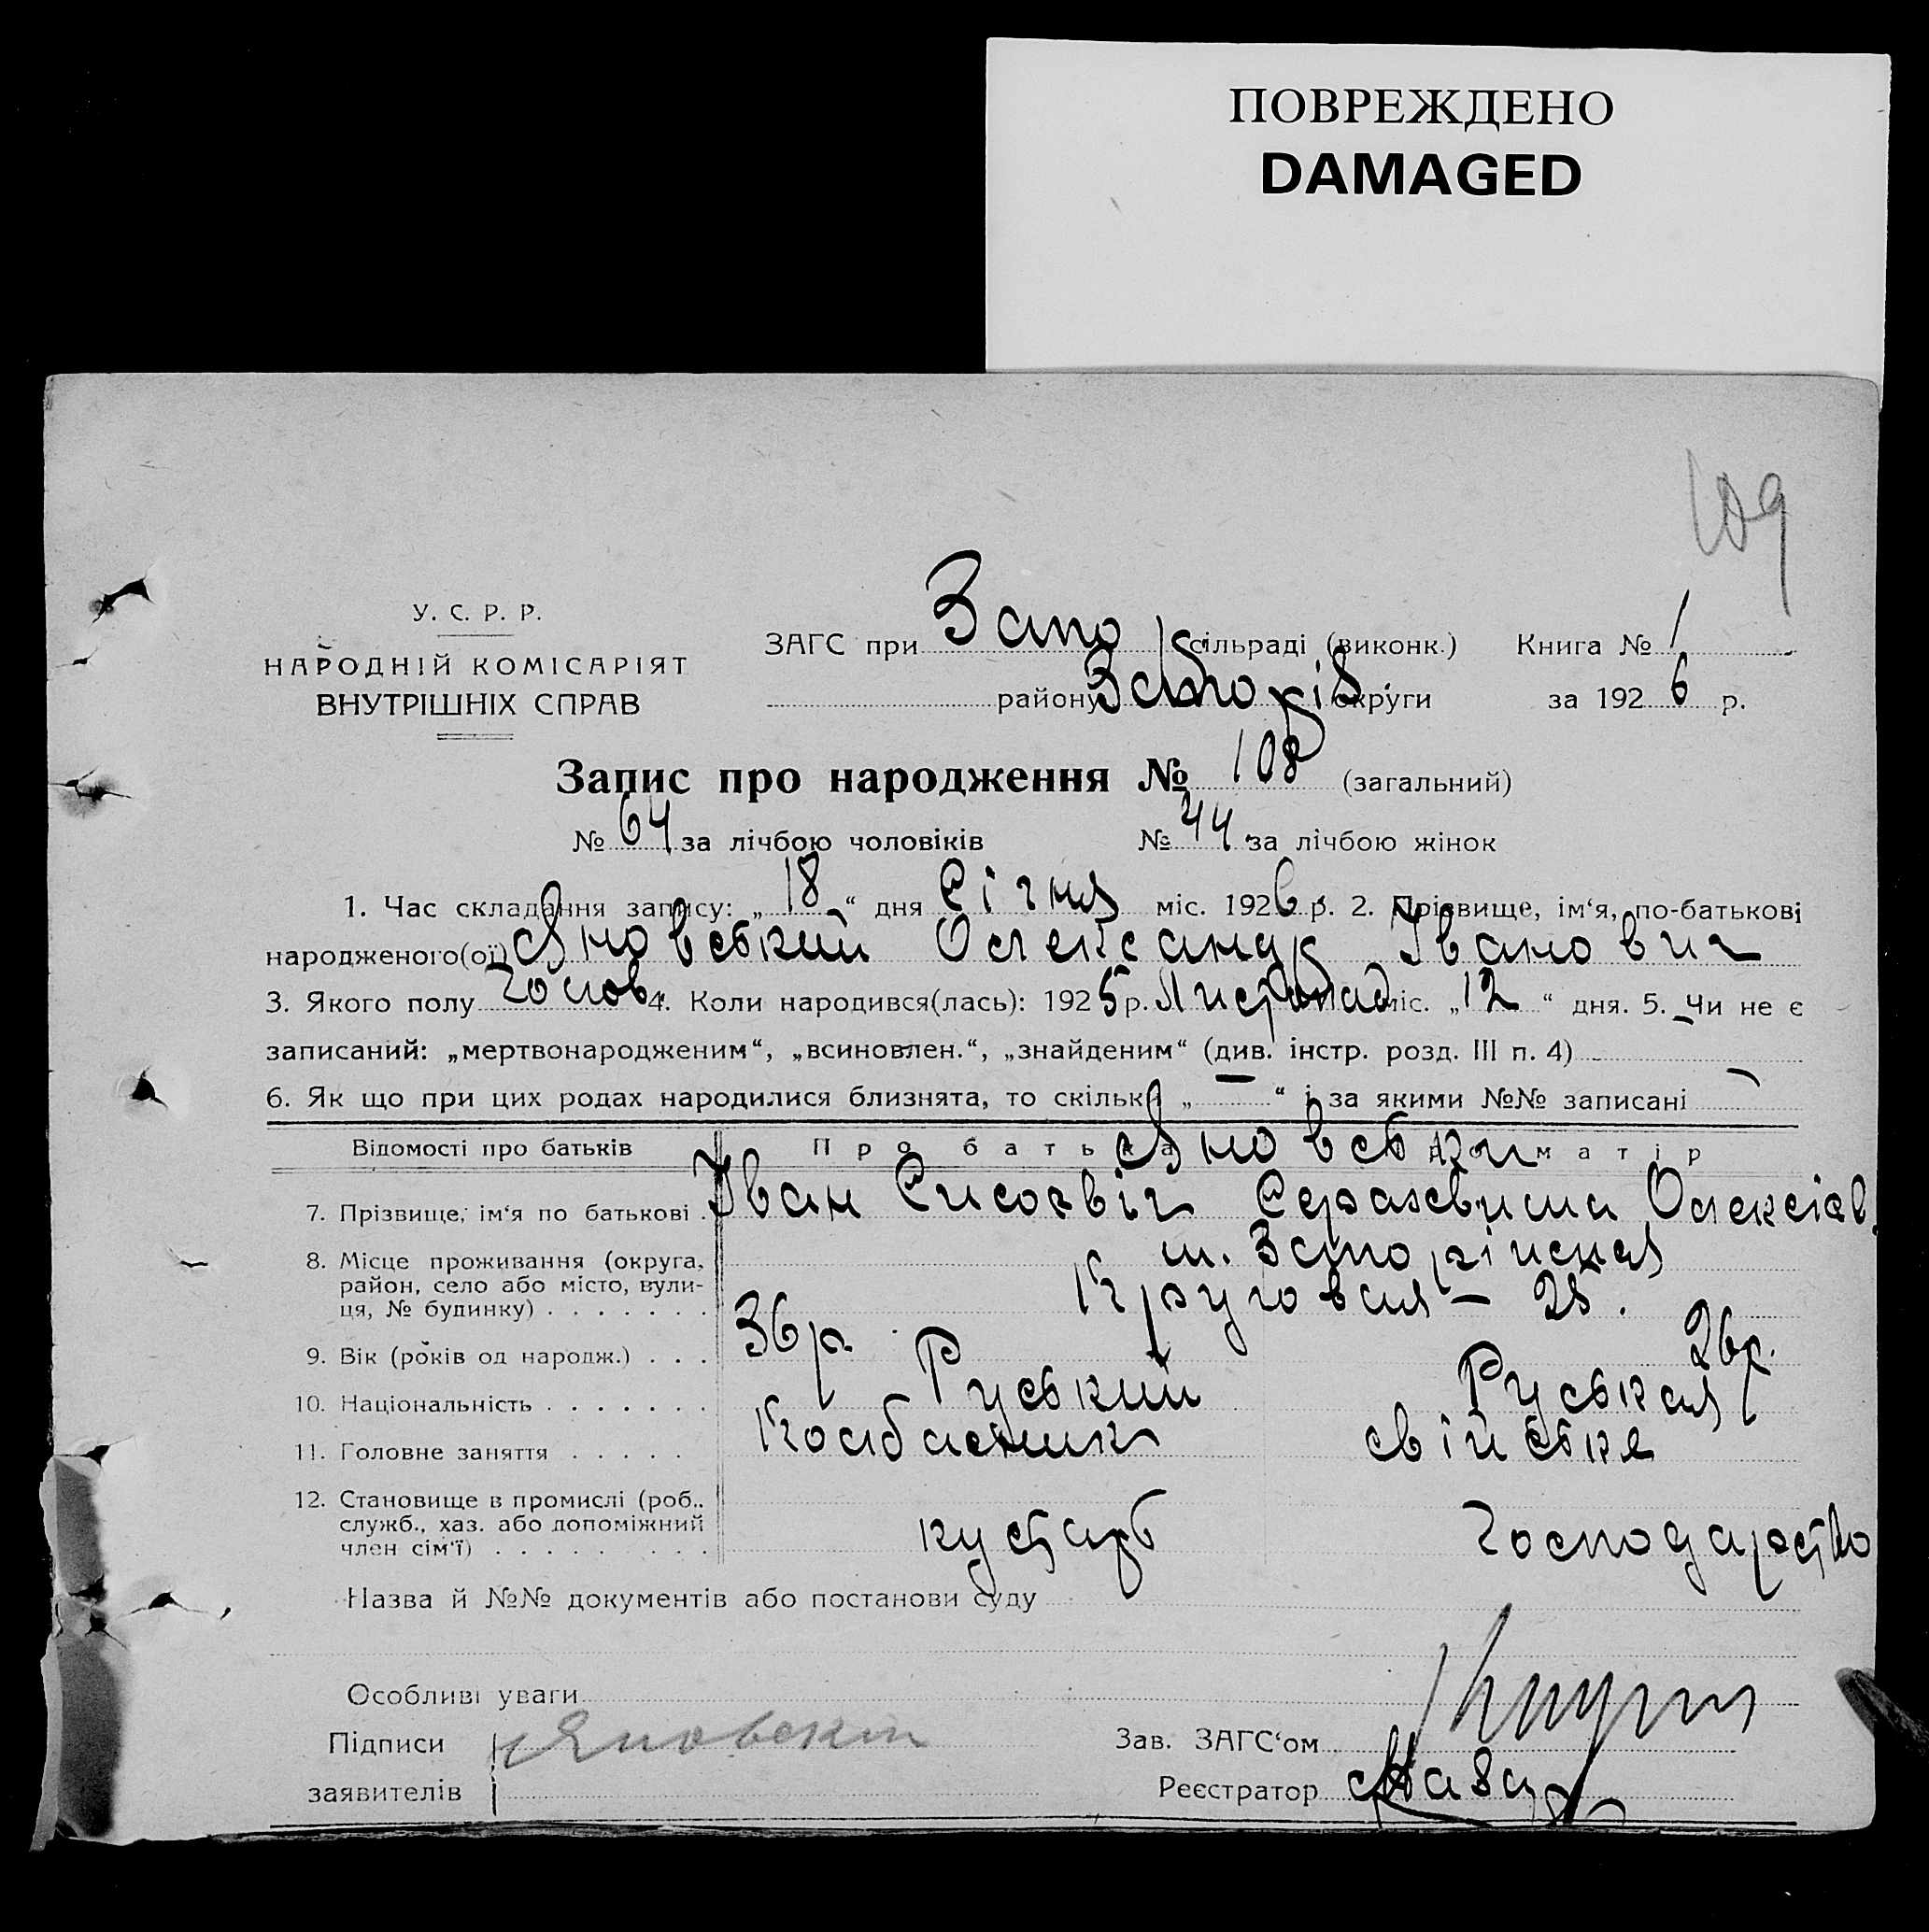 ПОВРЕЖДЕНО
DAMAGED
109
У. С. Р. Р.
НАРОДНІЙ КОМІСАРІЯТ
ВНУТРІШНІХ СПРАВ
ЗАГС при Запо сільраді (виконк.) Книга № 1
району Запоріз. округи за 1926 р.
Запис про народження № 108 (загальний)
№ 64 за лічбою чоловіків № 44 за лічбою жінок
1. Час складання запису: „18“ дня Січня міс. 1926 р. 2. Прізвище, ім‘я, по-батькові
народженого(ої) Яновський Олександр Іванович
3. Якого полу Чолов. 4. Коли народився(лась): 1925 р. Листопад міс. „12“ дня. 5. Чи не є
записаний: „мертвонародженим“, „всиновлен.“, „знайденим“ (див. інстр. розд. III п. 4) —
6. Як що при цих родах народилися близнята, то скільки „—“ і за якими №№ записані —
Відомості про батьків Про батька Про матір
Яновськи
7. Прізвище, ім‘я по батькові Іван Олексіев.
8. Місце проживання (округа, район, село або місто, вули-
ця, № будинку) м. Запоріжжя
Круговая — 25.
9. Вік (років од народж.) 36р. 26р.
10. Національність Руський Руськая
11. Головне заняття Колбасник свійске
12. Становище в промислі (роб.,
служб., хаз. або допоміжний
член сім‘ї) кустарь господарство
Назва й №№ документів або постанови суду
Особливі уваги
Підписи Яновский Зав. ЗАГС‘ом
заявителів Реєстратор